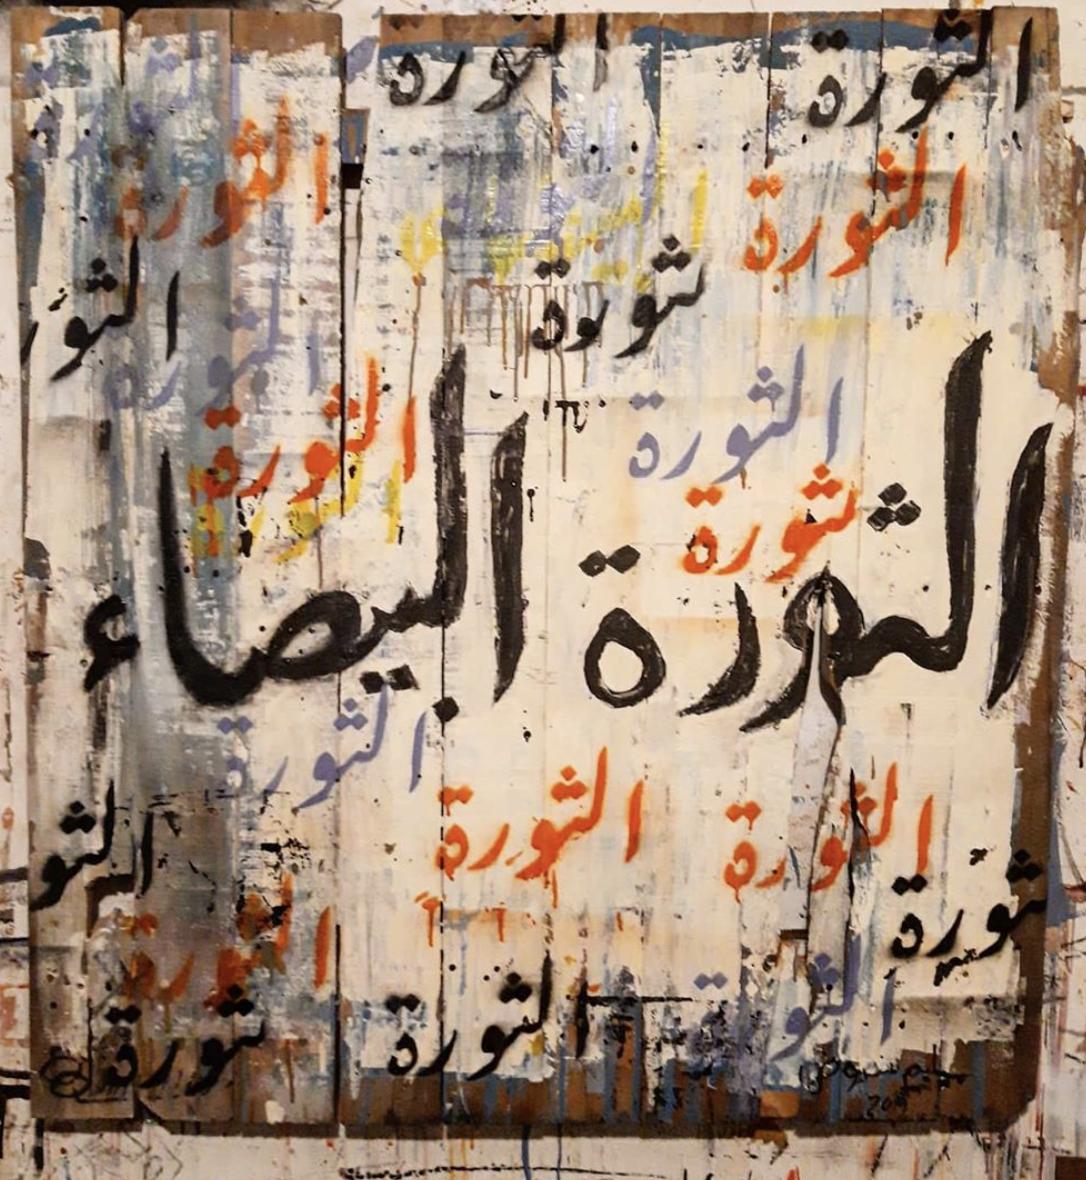 الثورة الثورة
الثورة الثورة
ثورة الثور
الثورة الثورة
ثورة الثورة
الثورة البيصاء
الثورة
الثورة الثورة الثو
ثورة الثورة
الثورة الثورة ثورة